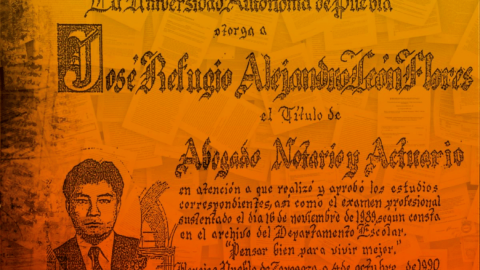 La Universidad Autónoma de Puebla
otorga a
José Refugio Alejandro León Flores
el Título de
Abogado Notario y Actuario
en atención a que realizó y aprobó los estudios
correspondientes, así como el examen profesional
sustentado el día 16 de noviembre de 1989, según consta
en el archivo del Departamento Escolar.
"Pensar bien para vivir mejor."
Puebla de Zaragoza a de octubre de 1990